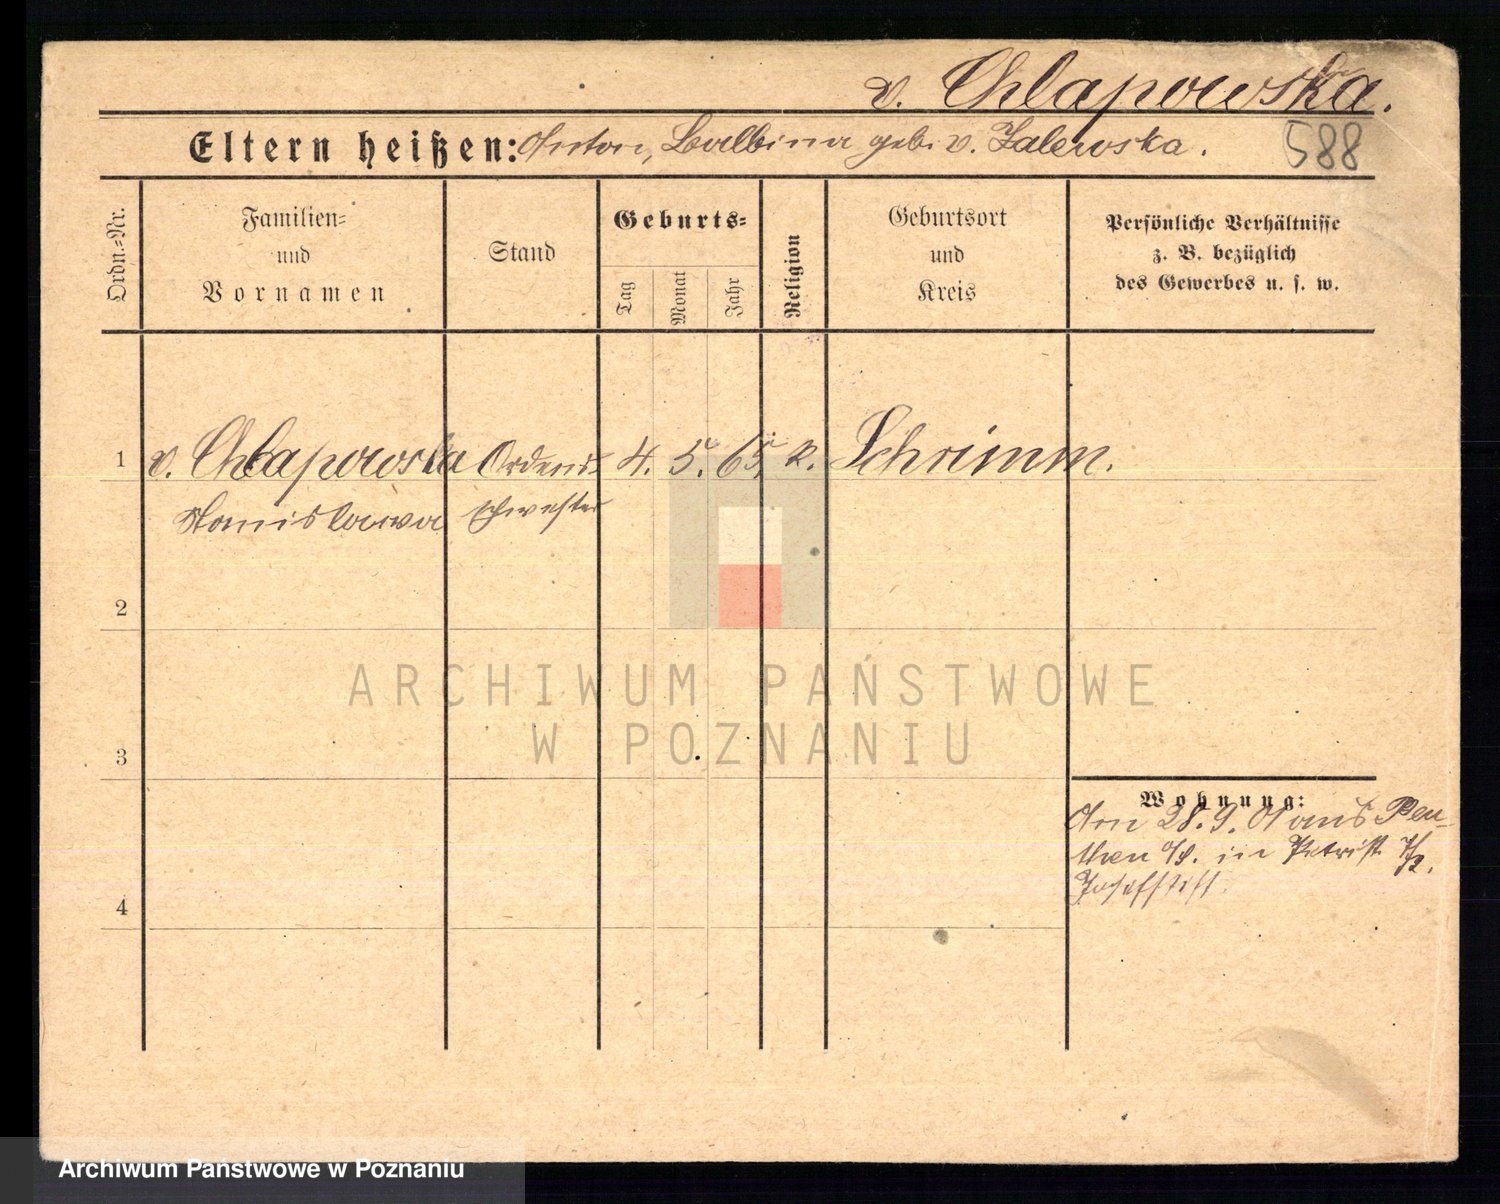 v. Chlapowska.
Eltern heißen: Anton, Balbina geb. v. Zalewska.
588
Ordn.-Nr.
Familien-
und
Vornamen
Stand
Geburts-
Tag
Monat
Jahr
Religion
Geburtsort
und
Kreis
Persönliche Verhältnisse
z. B. bezüglich
des Gewerbes u. s. w.
1 v. Chlapowska Ordens- 4. 5. 65. k. Schrimm.
Stanislawa schwester
2
3
4
Wohnung:
Am 28. 9. 01 aus Beu-
then O/S. in Petristr.
Josefstift.
ARCHIWUM PAŃSTWOWE
W POZNANIU
Archiwum Państwowe w Poznaniu